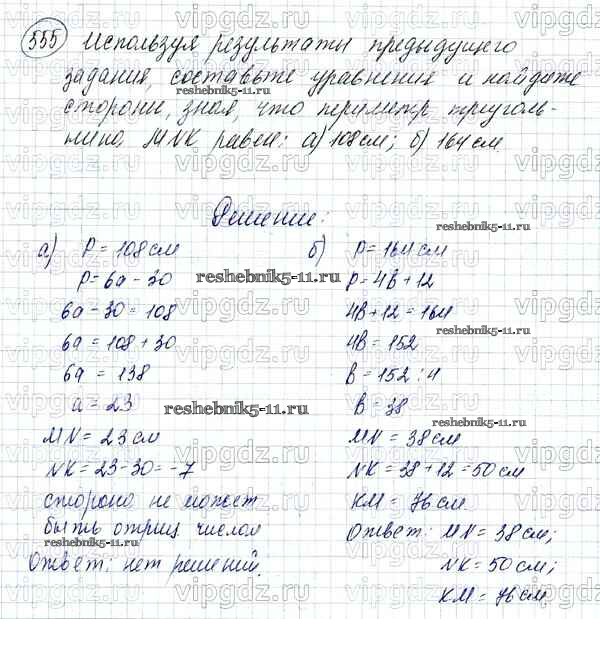 555 Используя результаты предыдущего
задания, составьте уравнение и найдите
стороны, зная, что периметр треуголь-
ника MNK равен: а) 108 см; б) 164 см.
Решение:
а) P = 108 см
P = 6a - 30
6a - 30 = 108
6a = 108 + 30
6a = 138
a = 23
MN = 23 см
NK = 23 - 30 = -7
сторона не может
быть отриц. числом
Ответ: нет решений.
б) P = 164 см
P = 4B + 12
4B + 12 = 164
4B = 152
B = 152 : 4
B = 38
MN = 38 см
NK = 38 + 12 = 50 см
KM = 76 см.
Ответ: MN = 38 см;
NK = 50 см;
KM = 76 см.
reshebnik5-11.ru
reshebnik5-11.ru
reshebnik5-11.ru
reshebnik5-11.ru
reshebnik5-11.ru
reshebnik5-11.ru
reshebnik5-11.ru
vipgdz.ru